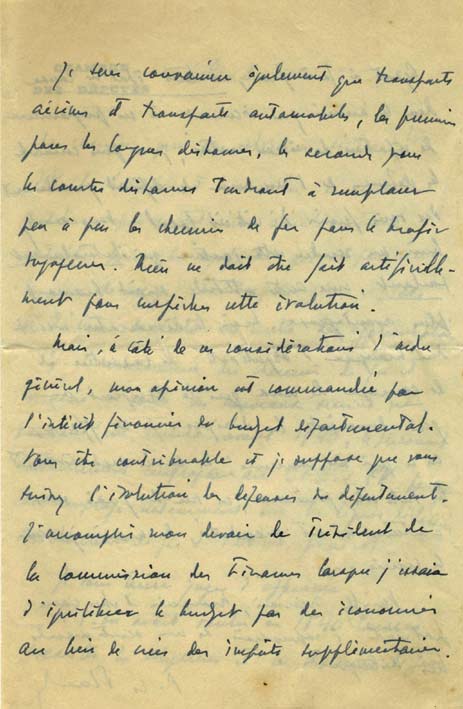 Je suis convaincu également que transports
aériens et transports automobiles, les premiers
pour les longues distances, les seconds pour
les courtes distances tendront à remplacer
peu à peu les chemins de fer pour le trafic
voyageurs. Rien ne doit être fait artificielle-
ment pour empêcher cette évolution.
Mais, à côté de ces considérations d'ordre
général, mon opinion est commandée par
l'intérêt financier du budget départemental.
Vous êtes contribuable et je suppose que vous
suivez l'évolution des dépenses du département.
J'accomplis mon devoir de Président de
la Commission des Finances lorsque j'essaie
d'équilibrer le budget par des économies
au lieu de créer des impôts supplémentaires.